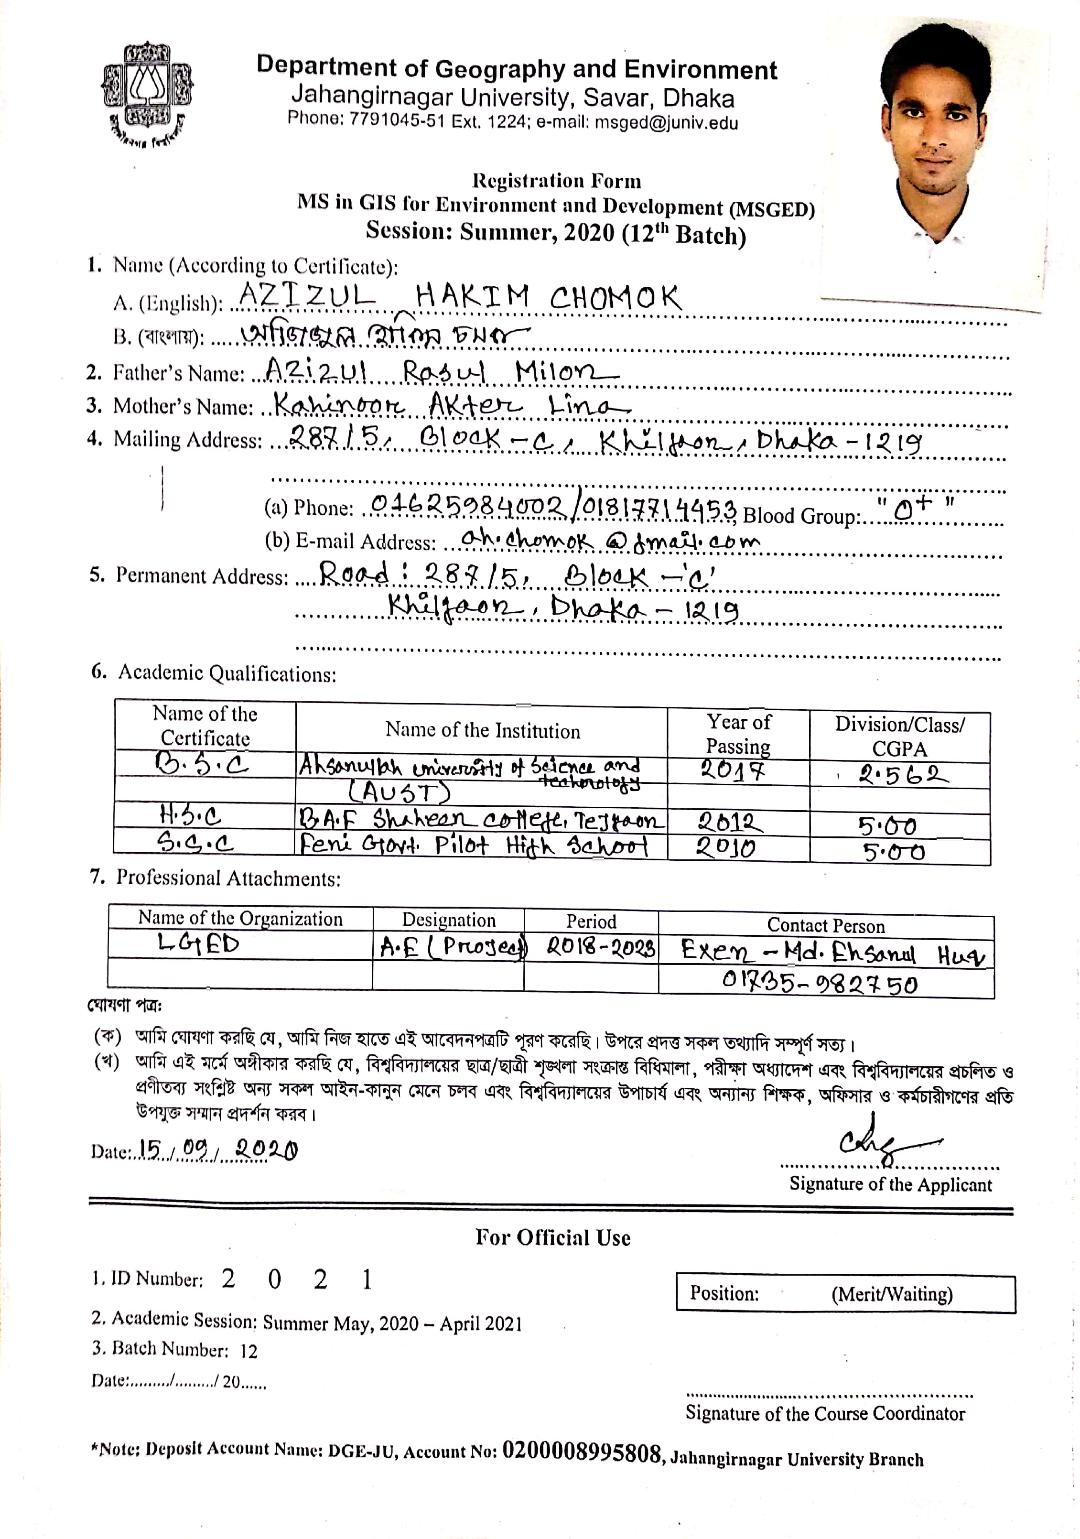 জাহাঙ্গীরনগর বিশ্ববিদ্যালয়
Department of Geography and Environment
Jahangirnagar University, Savar, Dhaka
Phone: 7791045-51 Ext. 1224; e-mail: msged@juniv.edu
Registration Form
MS in GIS for Environment and Development (MSGED)
Session: Summer, 2020 (12th Batch)
1. Name (According to Certificate):
A. (English): AZIZUL HAKIM CHOMOK
B. (বাংলায়): আজিজুল হাকিম চমক
2. Father's Name: Azizul Rasul Milon
3. Mother's Name: Kahinoor Akter Lina
4. Mailing Address: 287/5, Block-C, Khilgaon, Dhaka-1219
(a) Phone: 01625984002/01817714453, Blood Group: "O+"
(b) E-mail Address: ah.chomok@gmail.com
5. Permanent Address: Road: 287/5, Block-'C'
Khilgaon, Dhaka-1219
6. Academic Qualifications:
Name of the Certificate Name of the Institution Year of Passing Division/Class/CGPA
B.S.C Ahsanullah university of Science and technology 2017 2.562
(AUST)
H.S.C B.A.F Shaheen college, Tejgaon 2012 5.00
S.S.C Feni Govt. Pilot High School 2010 5.00
7. Professional Attachments:
Name of the Organization Designation Period Contact Person
LGED A.E (Project) 2018-2023 Exen - Md. Ehsanul Huq
01735-982750
ঘোষণা পত্র:
(ক) আমি ঘোষণা করছি যে, আমি নিজ হাতে এই আবেদনপত্রটি পূরণ করেছি। উপরে প্রদত্ত সকল তথ্যাদি সম্পূর্ণ সত্য।
(খ) আমি এই মর্মে অঙ্গীকার করছি যে, বিশ্ববিদ্যালয়ের ছাত্র/ছাত্রী শৃঙ্খলা সংক্রান্ত বিধিমালা, পরীক্ষা অধ্যাদেশ এবং বিশ্ববিদ্যালয়ের প্রচলিত ও
প্রণীতব্য সংশ্লিষ্ট অন্য সকল আইন-কানুন মেনে চলব এবং বিশ্ববিদ্যালয়ের উপাচার্য এবং অন্যান্য শিক্ষক, অফিসার ও কর্মচারীগণের প্রতি
উপযুক্ত সম্মান প্রদর্শন করব।
Date: 15/09/2020
Signature of the Applicant
For Official Use
1. ID Number: 2 0 2 1
Position: (Merit/Waiting)
2. Academic Session: Summer May, 2020 – April 2021
3. Batch Number: 12
Date:........./........./ 20......
Signature of the Course Coordinator
*Note: Deposit Account Name: DGE-JU, Account No: 0200008995808, Jahangirnagar University Branch